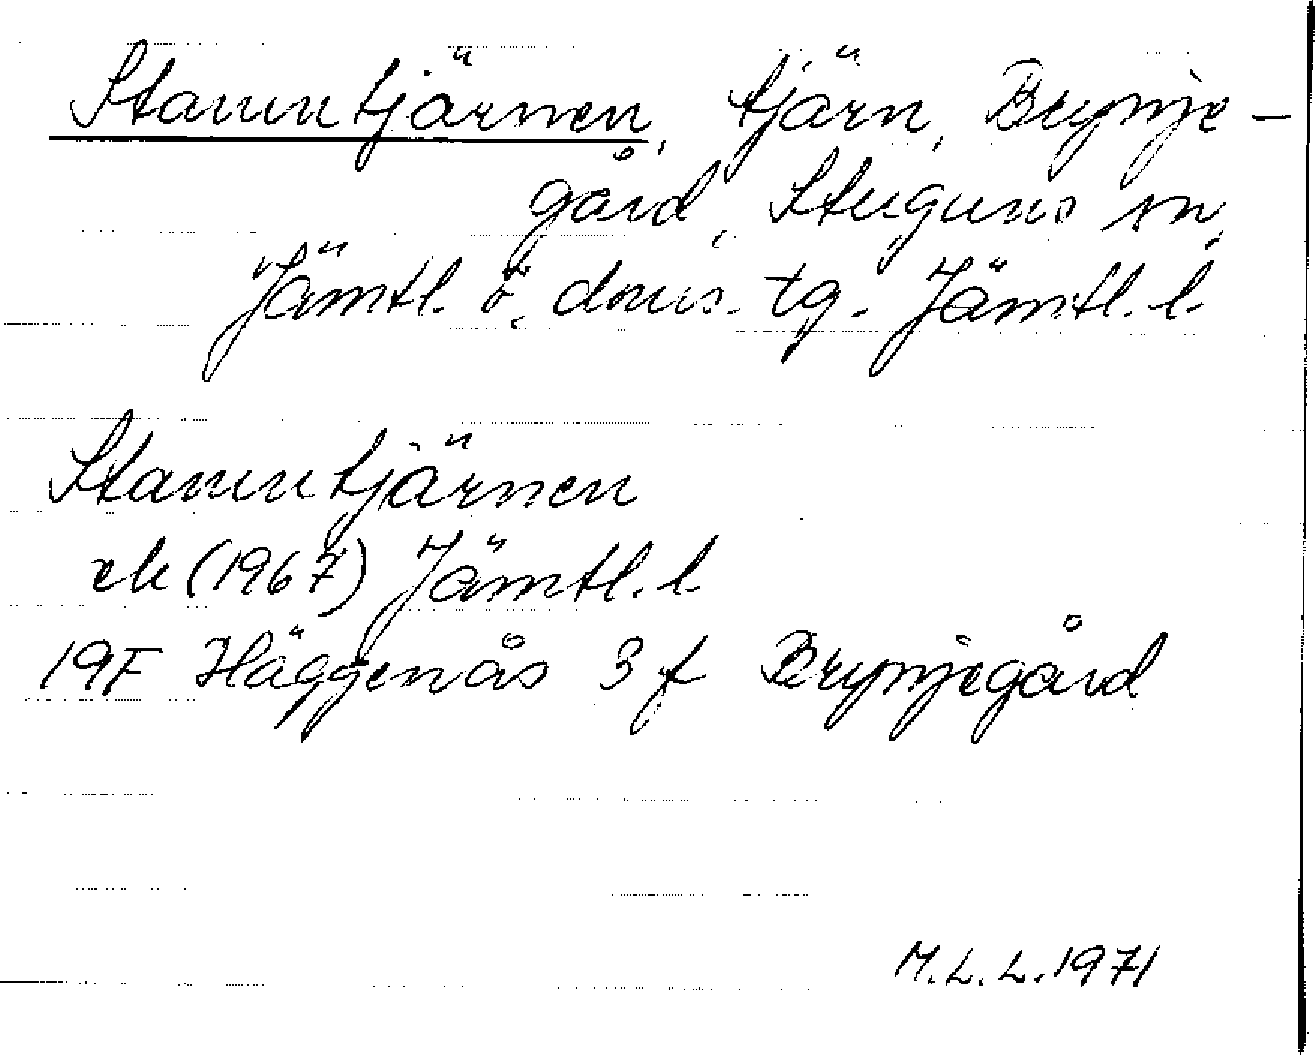 Stamntjärnen, tjärn, Brynje-
gård, Stuguns sn,
Jämtl. ö. doms. tg. Jämtl. l.
Stamntjärnen
ek (1967) Jämtl. l.
19F Häggenås 3 f Brynjegård
M.L.L. 1971